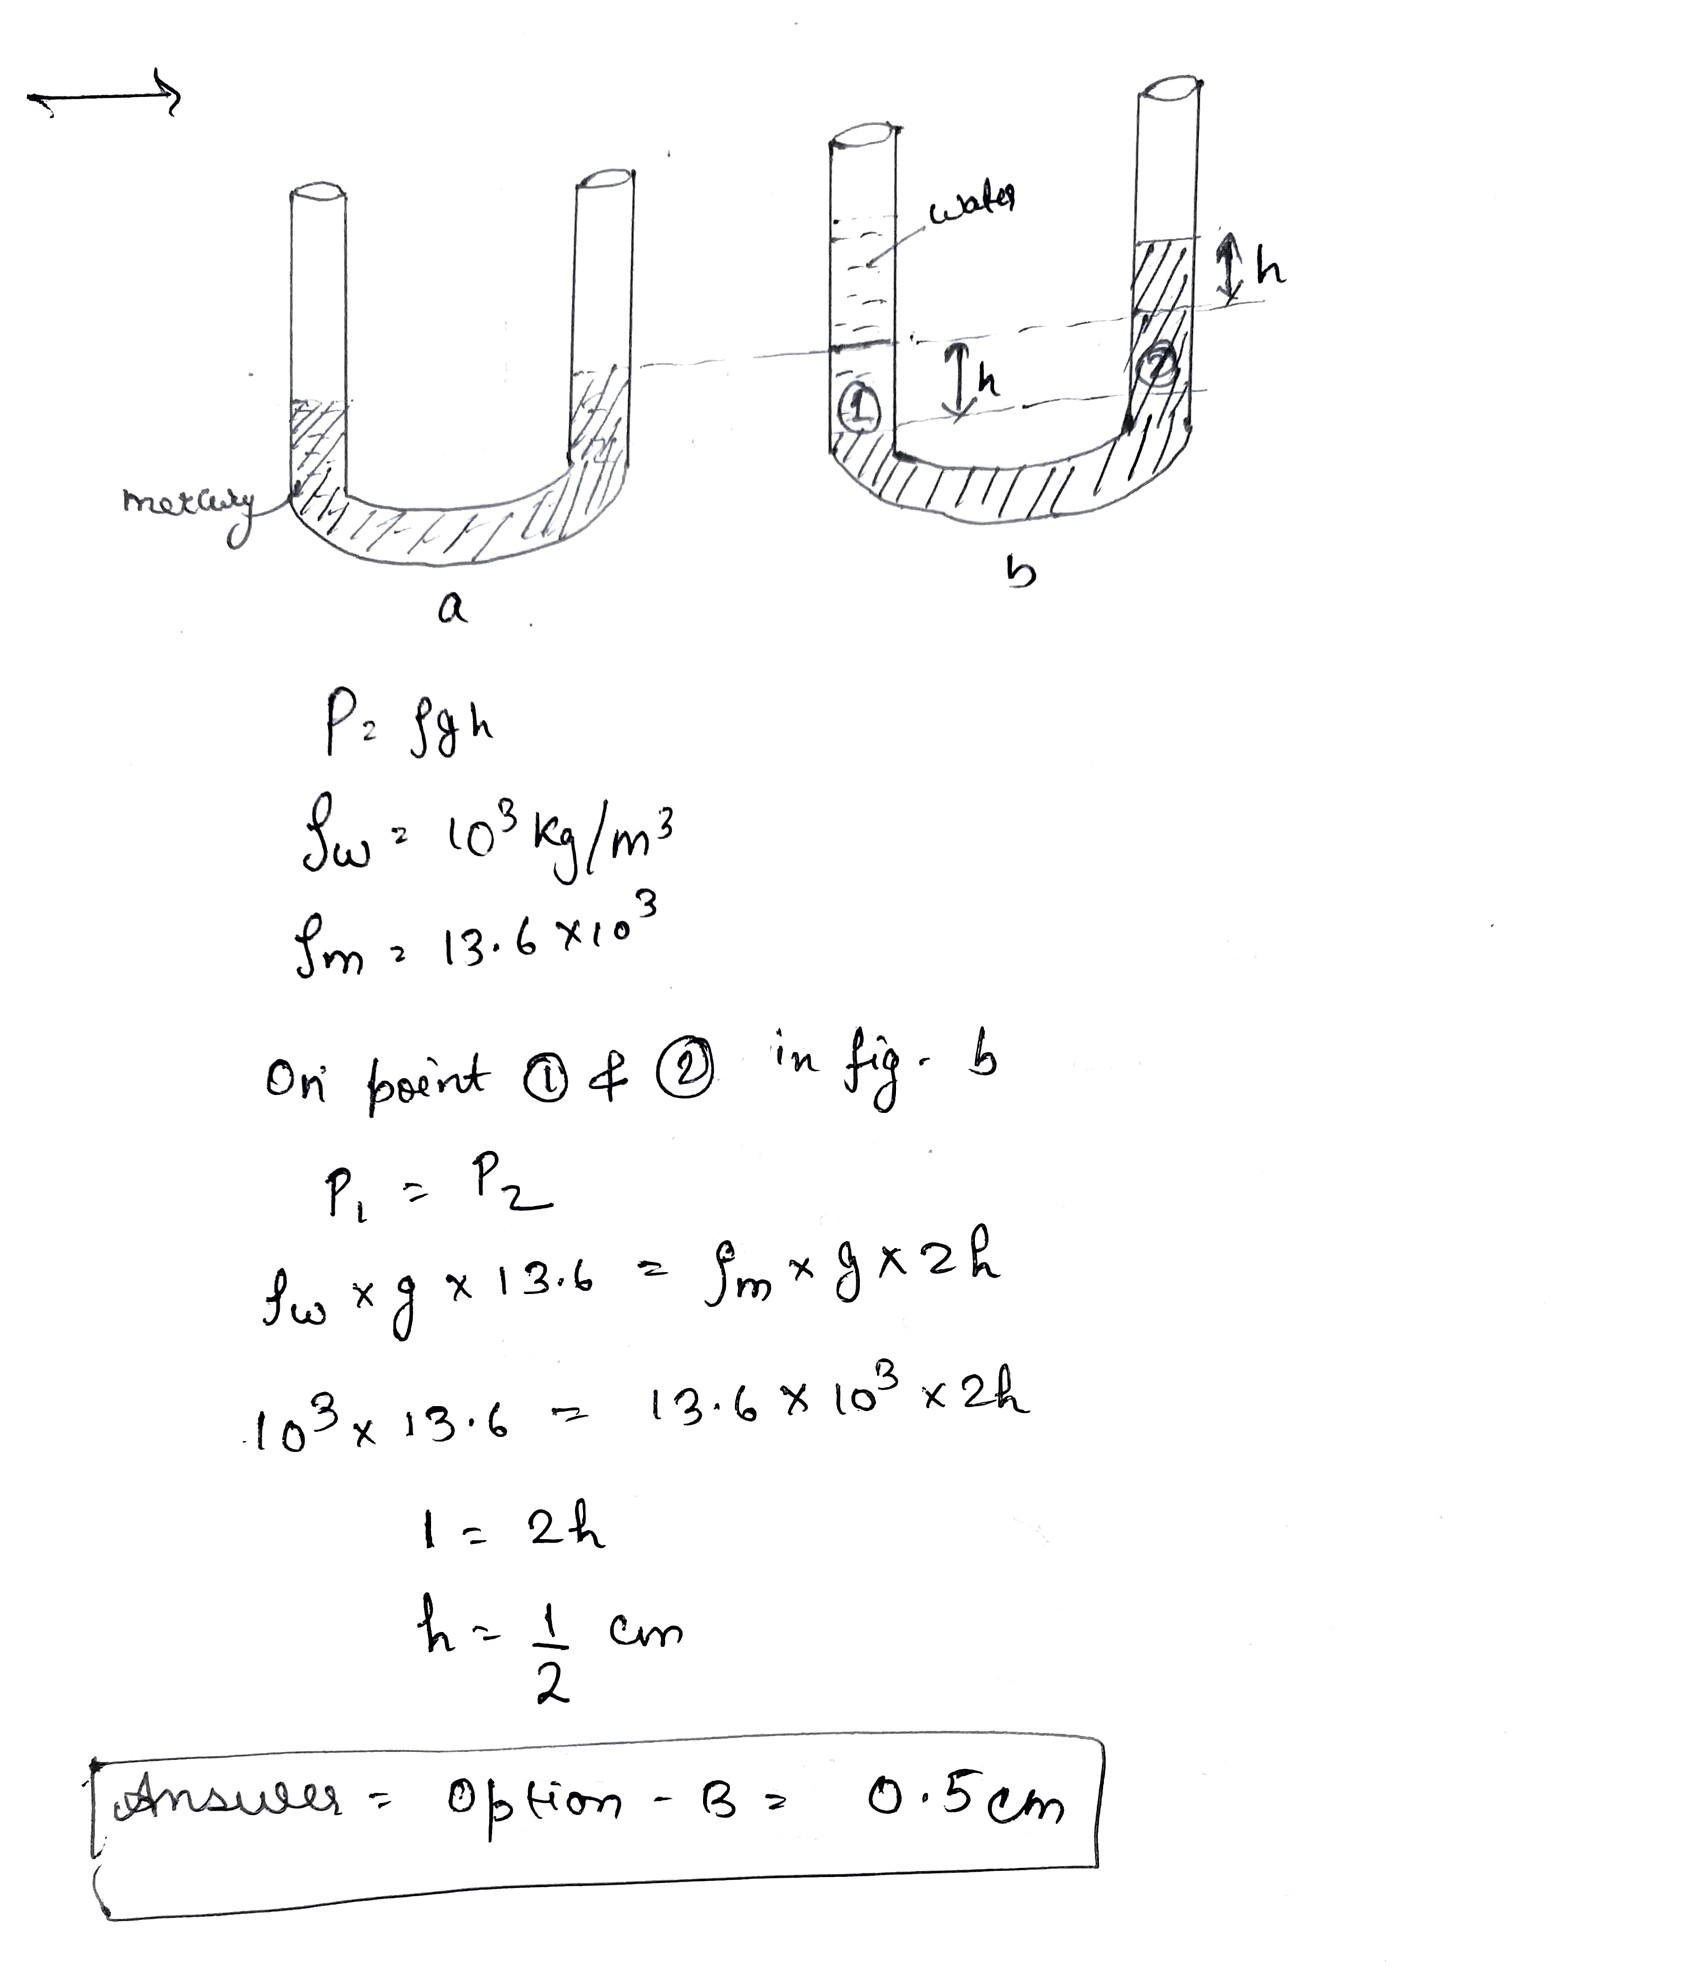 water
h
②
h
①
mercury
a
b
P = ρgh
ρw = 10³ kg/m³
ρm = 13.6 × 10³
On point ① & ② in fig. b
P₁ = P₂
ρw × g × 13.6 = ρm × g × 2h
10³ × 13.6 = 13.6 × 10³ × 2h
1 = 2h
h = 1/2 cm
Answer = Option - B = 0.5 cm